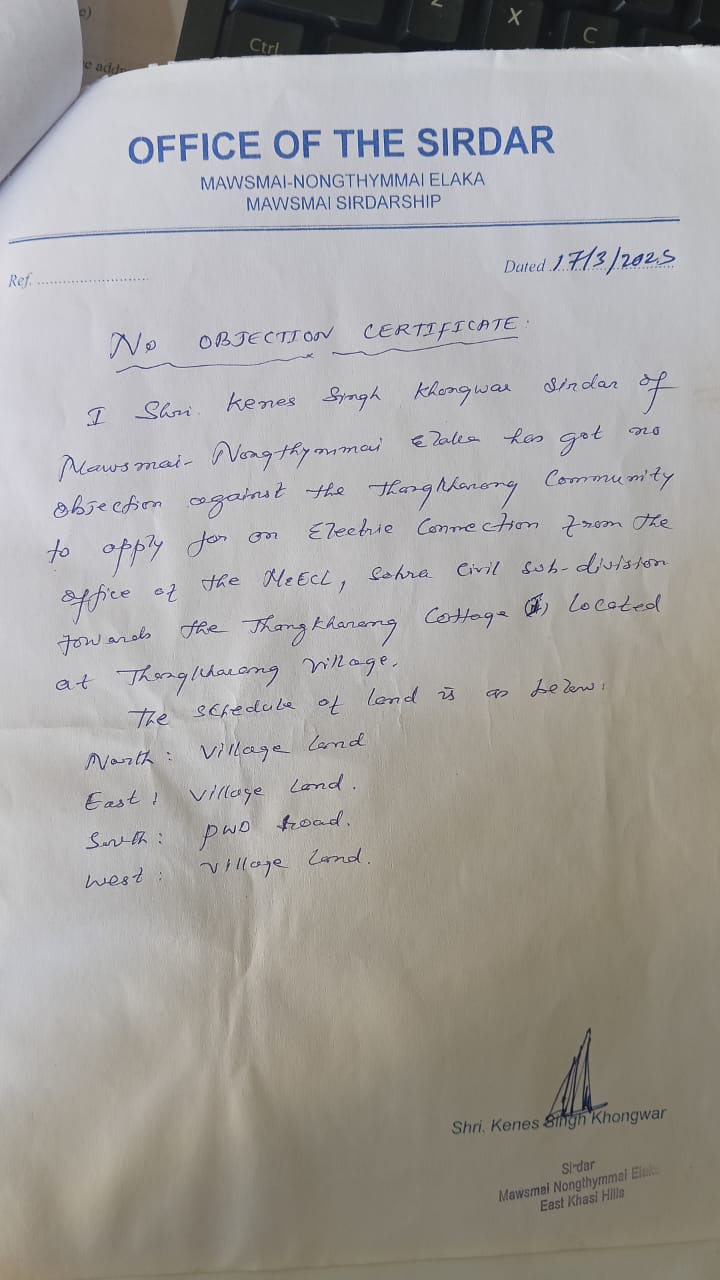 e)
e addr
Ctrl
Z
X
C
OFFICE OF THE SIRDAR
MAWSMAI-NONGTHYMMAI ELAKA
MAWSMAI SIRDARSHIP
Ref. ..........................
Dated 17/3/2025
No OBJECTION CERTIFICATE:
I Shri. Kenes Singh Khongwar Sirdar of
Mawsmai- Nongthymmai Elaka has got no
objection against the Thangkharang Community
to apply for an Electric Connection from the
office of the MeECL, Sohra Civil sub-division
towards the Thangkharang Cottage located
at Thangkharang village.
The schedule of land is as below:
North: Village Land
East: Village Land.
South: PWD Road.
West: Village Land.
Shri. Kenes Singh Khongwar
Sirdar
Mawsmai Nongthymmai Elaka
East Khasi Hills